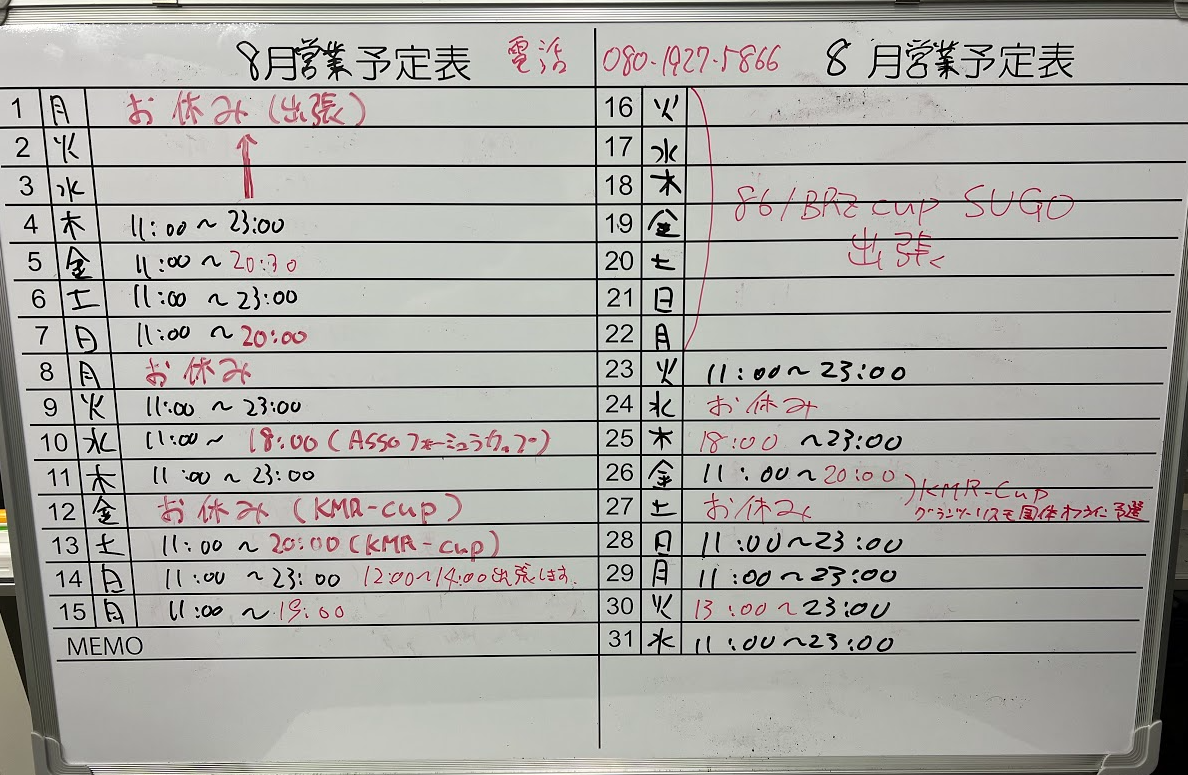 8月営業予定表 電話 080-1927-5866 8月営業予定表
1 月 お休み(出張)
2 火
3 水
4 木 11:00～23:00
5 金 11:00～20:30
6 土 11:00～23:00
7 日 11:00～20:00
8 月 お休み
9 火 11:00～23:00
10 水 11:00～18:00(Assoフォーミュラカップ)
11 木 11:00～23:00
12 金 お休み(KMR-cup)
13 土 11:00～20:00(KMR-cup)
14 日 11:00～23:00 12:00～14:00出張します.
15 月 11:00～19:00
MEMO
16 火
17 水
18 木
86/BRZ cup SUGO
19 金
出張
20 土
21 日
22 月
23 火 11:00～23:00
24 水 お休み
25 木 18:00～23:00
26 金 11:00～20:00
KMR-Cup
27 土 お休み
グランツーリスモ国体オフライン予選
28 日 11:00～23:00
29 月 11:00～23:00
30 火 13:00～23:00
31 水 11:00～23:00